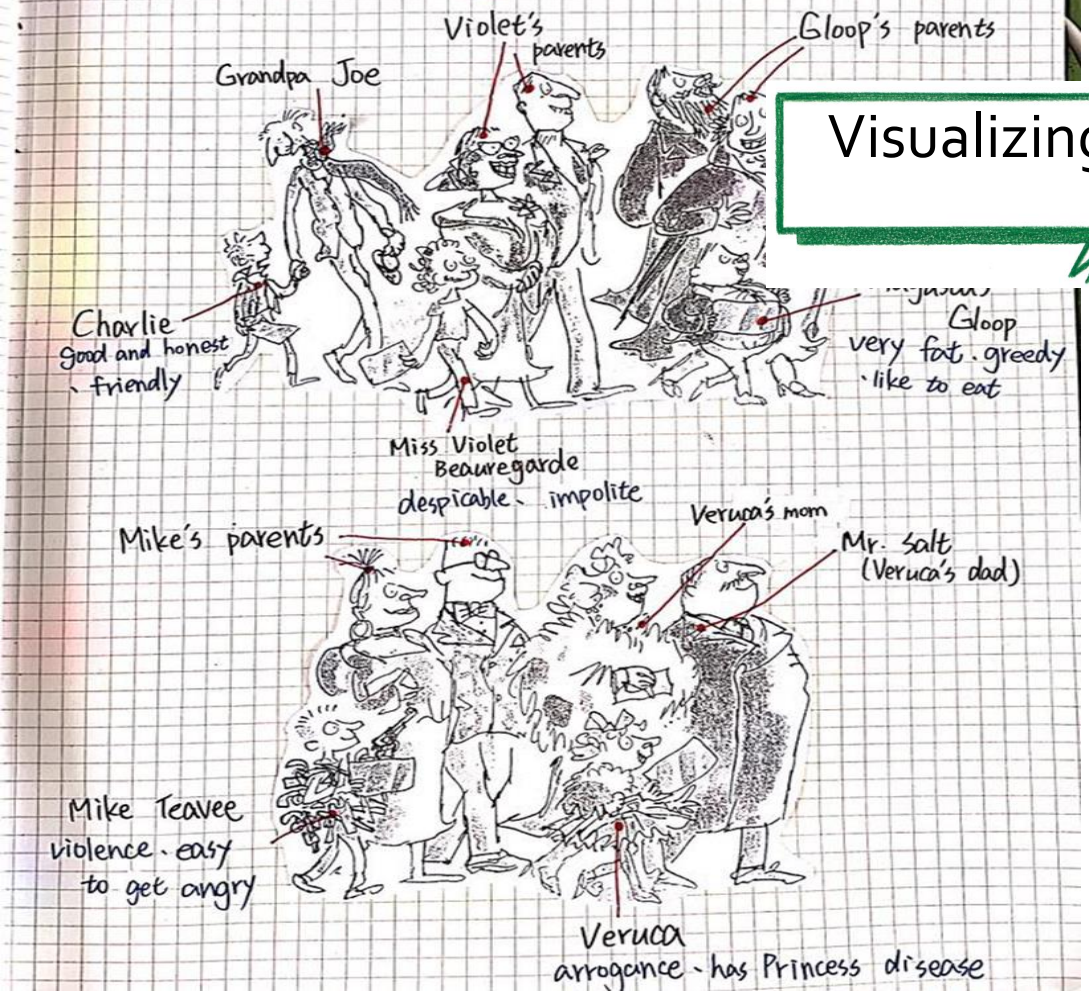 Violet's
parents
Gloop's parents
Grandpa Joe
Visualizing
Charlie
good and honest
、friendly
Gloop
very fat、greedy
、like to eat
Miss Violet
Beauregarde
despicable、impolite
Mike's parents
Veruca's mom
Mr. Salt
(Veruca's dad)
Mike Teavee
violence、easy
to get angry
Veruca
arrogance、has Princess disease